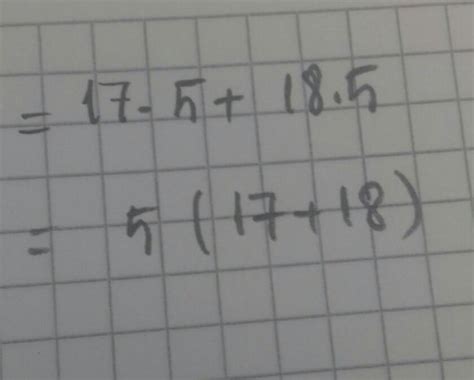 = 17. 5 + 18.5
= 5 (17+18)